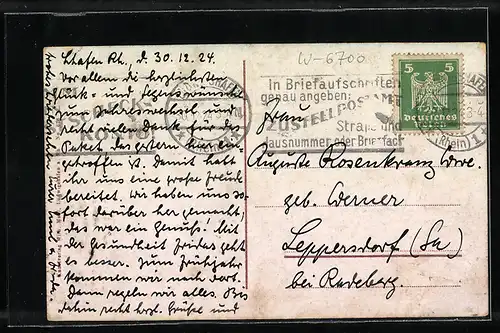 W-6700
Lhafen Rh., d. 30.12.24.
Vor allem die herzlichsten
Glück- und Segenswünsche
zum Jahreswechsel und
vielen Dank für das
Paket, das gestern hier ein-
getroffen ist. Damit habt
ihr uns eine große Freude
bereitet. Wir haben uns so-
fort darüber her gemacht,
das war ein Genuß! Mit
der Gesundheit Fridas geht
es besser. Zum Frühjahr
kommen wir nach dort.
Dann regeln wir alles. Bis
dahin recht herzl. Grüße und
In Briefaufschriften
genau angeben:
ZUSTELLPOSTAMT
Straße und
Hausnummer oder Brieffach
5 5
Deutsches
(Rhein) 1
Frau
Auguste Rosenkranz Wwe.
geb. Werner
Leppersdorf (Sa)
bei Radeberg.